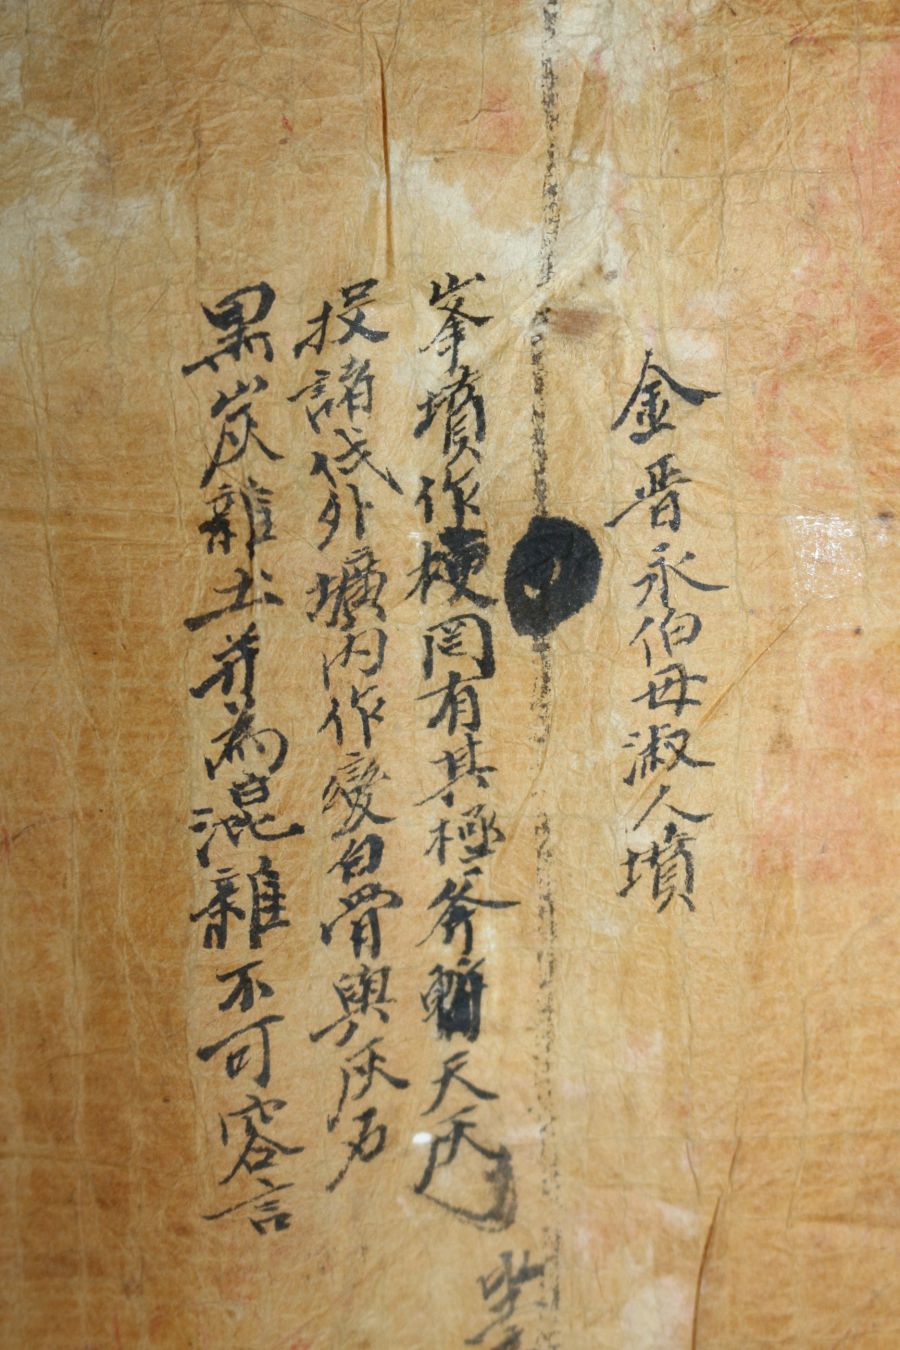 金晋永伯母淑人墳
峯墳作梗罔有其極斧天灰
投諸伐外壙内作變白骨與灰石
黑炭雜土并為混雜不可容言